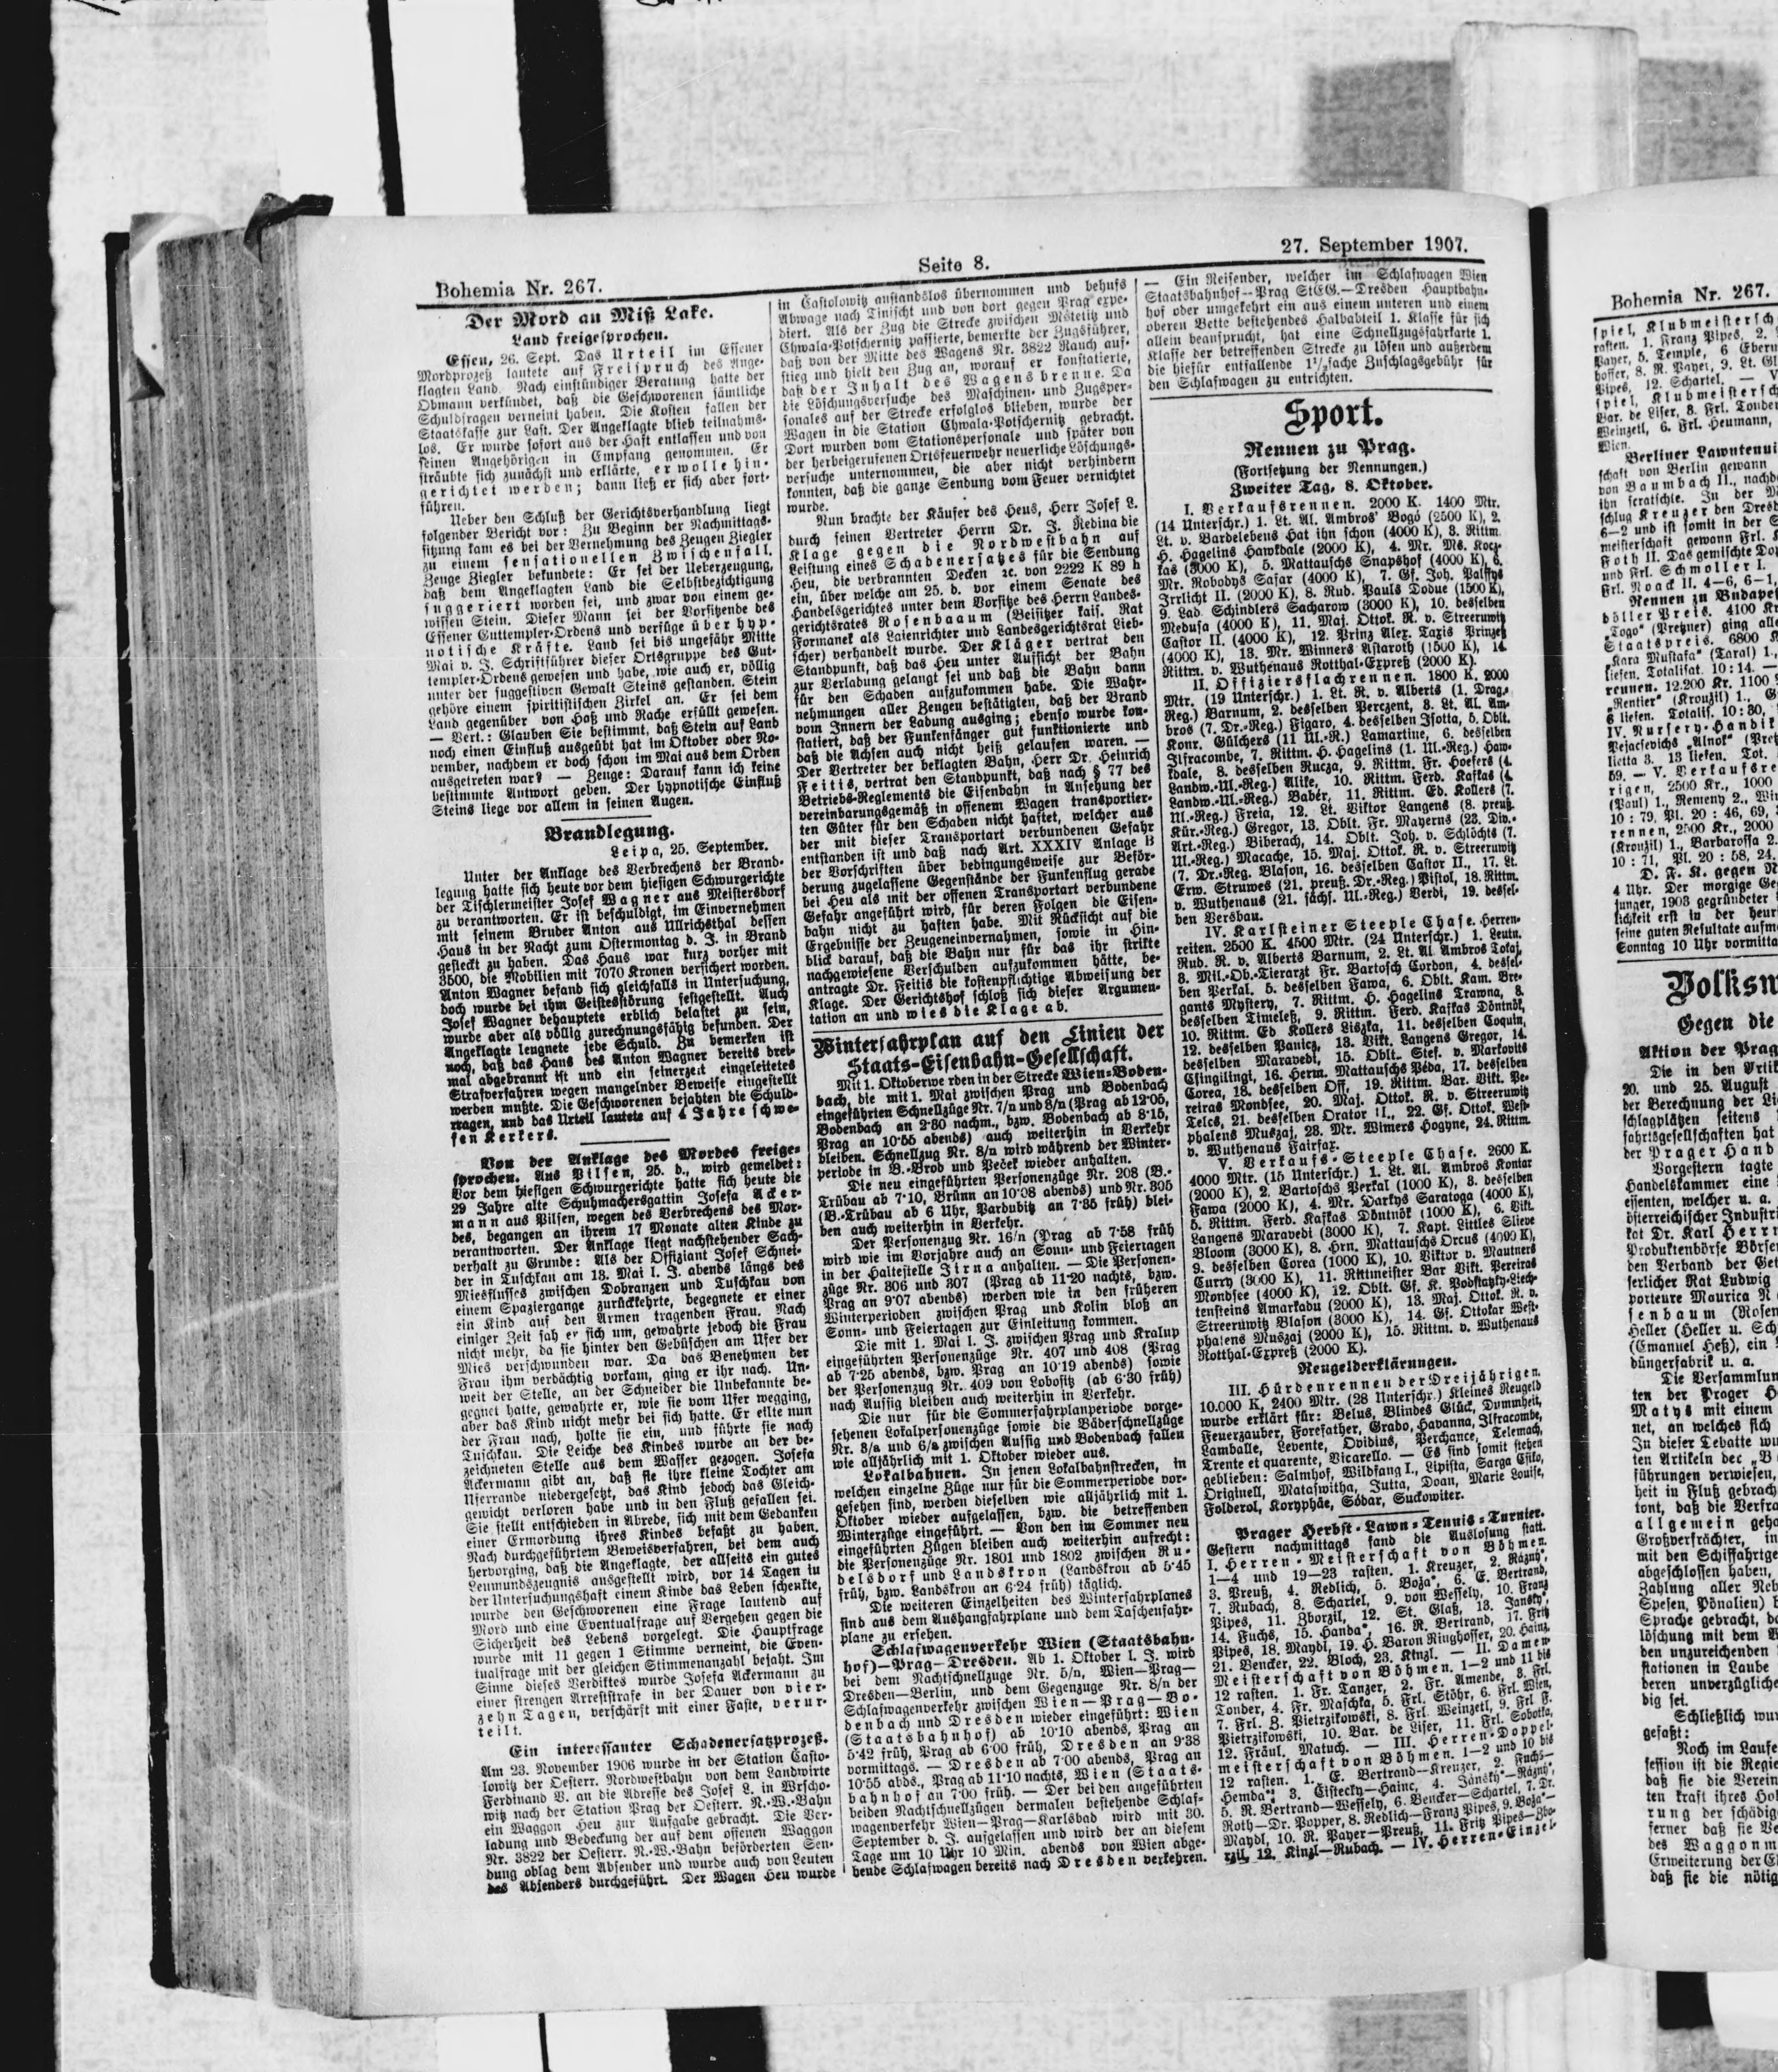 Bohemia Nr. 267.
Seite 8.
27. September 1907.
Der Mord an Miß Lake.
Land freigesprochen.
Essen, 26. Sept. Das Urteil im Essener
Mordprozeß lautete auf Freispruch des Ange-
klagten Land. Nach einstündiger Beratung hatte der
Obmann verkündet, daß die Geschworenen sämtliche
Schuldfragen verneint haben. Die Kosten fallen der
Staatskasse zur Last. Der Angeklagte blieb teilnahms-
los. Er wurde sofort aus der Haft entlassen und von
seinen Angehörigen in Empfang genommen. Er
sträubte sich zunächst und erklärte, er wolle hin-
gerichtet werden; dann ließ er sich aber fort-
führen.
Ueber den Schluß der Gerichtsverhandlung liegt
folgender Bericht vor: Zu Beginn der Nachmittags-
sitzung kam es bei der Vernehmung des Zeugen Ziegler
zu einem sensationellen Zwischenfall.
Zeuge Ziegler bekundete: Er sei der Ueberzeugung,
daß dem Angeklagten Land die Selbstbezichtigung
suggeriert worden sei, und zwar von einem ge-
wissen Stein. Dieser Mann sei der Vorsitzende des
Essener Guttempler-Ordens und verfüge über hyp-
notische Kräfte. Land sei bis ungefähr Mitte
Mai v. J. Schriftführer dieser Ortsgruppe des Gut-
templer-Ordens gewesen und habe, wie auch er, völlig
unter der suggestiven Gewalt Steins gestanden. Stein
gehöre einem spiritistischen Zirkel an. Er sei dem
Land gegenüber von Haß und Rache erfüllt gewesen.
— Vert.: Glauben Sie bestimmt, daß Stein auf Land
noch einen Einfluß ausgeübt hat im Oktober oder No-
vember, nachdem er doch schon im Mai aus dem Orden
ausgetreten war? — Zeuge: Darauf kann ich keine
bestimmte Antwort geben. Der hypnotische Einfluß
Steins liege vor allem in seinen Augen.
Brandlegung.
Leipa, 25. September.
Unter der Anklage des Verbrechens der Brand-
legung hatte sich heute vor dem hiesigen Schwurgerichte
der Tischlermeister Josef Wagner aus Meistersdorf
zu verantworten. Er ist beschuldigt, im Einvernehmen
mit seinem Bruder Anton aus Ullrichsthal dessen
Haus in der Nacht zum Ostermontag d. J. in Brand
gesteckt zu haben. Das Haus war kurz vorher mit
3500, die Mobilien mit 7070 Kronen versichert worden.
Anton Wagner befand sich gleichfalls in Untersuchung,
doch wurde bei ihm Geistesstörung festgestellt. Auch
Josef Wagner behauptete erblich belastet zu sein,
wurde aber als völlig zurechnungsfähig befunden. Der
Angeklagte leugnete jede Schuld. Zu bemerken ist
noch, daß das Haus des Anton Wagner bereits drei-
mal abgebrannt ist und ein seinerzeit eingeleitetes
Strafverfahren wegen mangelnder Beweise eingestellt
werden mußte. Die Geschworenen bejahten die Schuld-
fragen, und das Urteil lautete auf 4 Jahre schwe-
ren Kerkers.
Von der Anklage des Mordes freige-
sprochen. Aus Pilsen, 25. d., wird gemeldet:
Vor dem hiesigen Schwurgerichte hatte sich heute die
29 Jahre alte Schuhmachersgattin Josefa Acker-
mann aus Pilsen, wegen des Verbrechens des Mor-
des, begangen an ihrem 17 Monate alten Kinde zu
verantworten. Der Anklage liegt nachstehender Sach-
verhalt zu Grunde: Als der Offiziant Josef Schnei-
der in Tuschkau am 13. Mai l. J. abends längs des
Miesflusses zwischen Dobranzen und Tuschkau von
einem Spaziergange zurückkehrte, begegnete er einer
ein Kind auf den Armen tragenden Frau. Nach
einiger Zeit sah er sich um, gewahrte jedoch die Frau
nicht mehr, da sie hinter den Gebüschen am Ufer der
Mies verschwunden war. Da das Benehmen der
Frau ihm verdächtig vorkam, ging er ihr nach. Un-
weit der Stelle, an der Schneider die Unbekannte be-
gegnet hatte, gewahrte er, wie sie vom Ufer wegging,
aber das Kind nicht mehr bei sich hatte. Er eilte nun
der Frau nach, holte sie ein, und führte sie nach
Tuschkau. Die Leiche des Kindes wurde an der be-
zeichneten Stelle aus dem Wasser gezogen. Josefa
Ackermann gibt an, daß sie ihre kleine Tochter am
Uferrande niedergesetzt, das Kind jedoch das Gleich-
gewicht verloren habe und in den Fluß gefallen sei.
Sie stellt entschieden in Abrede, sich mit dem Gedanken
einer Ermordung ihres Kindes befaßt zu haben.
Nach durchgeführtem Beweisverfahren, bei dem auch
hervorging, daß die Angeklagte, der allseits ein gutes
Leumundszeugnis ausgestellt wird, vor 14 Tagen in
der Untersuchungshaft einem Kinde das Leben schenkte,
wurde den Geschworenen eine Frage lautend auf
Mord und eine Eventualfrage auf Vergehen gegen die
Sicherheit des Lebens vorgelegt. Die Hauptfrage
wurde mit 11 gegen 1 Stimme verneint, die Even-
tualfrage mit der gleichen Stimmenanzahl bejaht. Im
Sinne dieses Verdiktes wurde Josefa Ackermann zu
einer strengen Arreststrafe in der Dauer von vier-
zehn Tagen, verschärft mit einer Faste, verur-
teilt.
Ein interessanter Schadenersatzprozeß.
Am 23. November 1906 wurde in der Station Casto-
lowitz der Oesterr. Nordwestbahn von dem Landwirte
Ferdinand V. an die Adresse des Josef L. in Wrscho-
witz nach der Station Prag der Oesterr. N.-W.-Bahn
ein Waggon Heu zur Aufgabe gebracht. Die Ver-
ladung und Bedeckung der auf dem offenen Waggon
Nr. 3822 der Oesterr. N.-W.-Bahn beförderten Sen-
dung oblag dem Absender und wurde auch von Leuten
des Absenders durchgeführt. Der Wagen Heu wurde
in Castolowitz anstandslos übernommen und behufs
Abwage nach Tinischt und von dort gegen Prag expe-
diert. Als der Zug die Strecke zwischen Mstetitz und
Chwala-Potschernitz passierte, bemerkte der Zugsführer,
daß von der Mitte des Wagens Nr. 3822 Rauch auf-
stieg und hielt den Zug an, worauf er konstatierte,
daß der Inhalt des Wagens brenne. Da
die Löschungsversuche des Maschinen- und Zugsper-
sonales auf der Strecke erfolglos blieben, wurde der
Wagen in die Station Chwala-Potschernitz gebracht.
Dort wurden vom Stationspersonale und später von
der herbeigerufenen Ortsfeuerwehr neuerliche Löschungs-
versuche unternommen, die aber nicht verhindern
konnten, daß die ganze Sendung vom Feuer vernichtet
wurde.
Nun brachte der Käufer des Heus, Herr Josef L.
durch seinen Vertreter Herrn Dr. J. Nedina die
Klage gegen die Nordwestbahn auf
Leistung eines Schadenersatzes für die Sendung
Heu, die verbrannten Decken ꝛc. von 2222 K 89 h
ein, über welche am 25. d. vor einem Senate des
Handelsgerichtes unter dem Vorsitze des Herrn Landes-
gerichtsrates Rosenbaaum (Beisitzer kais. Rat
Formanek als Laienrichter und Landesgerichtsrat Lieb-
scher) verhandelt wurde. Der Kläger vertrat den
Standpunkt, daß das Heu unter Aufsicht der Bahn
zur Verladung gelangt sei und daß die Bahn dann
für den Schaden aufzukommen habe. Die Wahr-
nehmungen aller Zeugen bestätigten, daß der Brand
vom Innern der Ladung ausging; ebenso wurde kon-
statiert, daß der Funkenfänger gut funktionierte und
daß die Achsen auch nicht heiß gelaufen waren. —
Der Vertreter der beklagten Bahn, Herr Dr. Heinrich
Feitis, vertrat den Standpunkt, daß nach § 77 des
Betriebs-Reglements die Eisenbahn in Ansehung der
vereinbarungsgemäß in offenem Wagen transportier-
ten Güter für den Schaden nicht haftet, welcher aus
der mit dieser Transportart verbundenen Gefahr
entstanden ist und daß nach Art. XXXIV Anlage B
der Vorschriften über bedingungsweise zur Beför-
derung zugelassene Gegenstände der Funkenflug gerade
bei Heu als mit der offenen Transportart verbundene
Gefahr angeführt wird, für deren Folgen die Eisen-
bahn nicht zu haften habe. Mit Rücksicht auf die
Ergebnisse der Zeugeneinvernahmen, sowie in Hin-
blick darauf, daß die Bahn nur für das ihr strikte
nachgewiesene Verschulden aufzukommen hätte, be-
antragte Dr. Feitis die kostenpflichtige Abweisung der
Klage. Der Gerichtshof schloß sich dieser Argumen-
tation an und wies die Klage ab.
Winterfahrplan auf den Linien der
Staats-Eisenbahn-Gesellschaft.
Mit 1. Oktoberwe rden in der Strecke Wien-Boden-
bach, die mit 1. Mai zwischen Prag und Bodenbach
eingeführten Schnellzüge Nr. 7/n und 8/n (Prag ab 12·05,
Bodenbach an 2·30 nachm., bzw. Bodenbach ab 8·15,
Prag an 10·55 abends) auch weiterhin in Verkehr
bleiben. Schnellzug Nr. 8/n wird während der Winter-
periode in B.-Brod und Peček wieder anhalten.
Die neu eingeführten Personenzüge Nr. 208 (B.-
Trübau ab 7·10, Brünn an 10·08 abends) und Nr. 305
(B.-Trübau ab 6 Uhr, Pardubitz an 7·35 früh) blei-
ben auch weiterhin in Verkehr.
Der Personenzug Nr. 16/n (Prag ab 7·58 früh
wird wie im Vorjahre auch an Sonn- und Feiertagen
in der Haltestelle Jirna anhalten. — Die Personen-
züge Nr. 306 und 307 (Prag ab 11·20 nachts, bzw.
Prag an 9·07 abends) werden wie in den früheren
Winterperioden zwischen Prag und Kolin bloß an
Sonn- und Feiertagen zur Einleitung kommen.
Die mit 1. Mai l. J. zwischen Prag und Kralup
eingeführten Personenzüge Nr. 407 und 408 (Prag
ab 7·25 abends, bzw. Prag an 10·19 abends) sowie
der Personenzug Nr. 409 von Lobositz (ab 6·30 früh)
nach Aussig bleiben auch weiterhin in Verkehr.
Die nur für die Sommerfahrplanperiode vorge-
sehenen Lokalpersonenzüge sowie die Bäderschnellzüge
Nr. 8/a und 6/a zwischen Aussig und Bodenbach fallen
wie alljährlich mit 1. Oktober wieder aus.
Lokalbahnen. In jenen Lokalbahnstrecken, in
welchen einzelne Züge nur für die Sommerperiode vor-
gesehen sind, werden dieselben wie alljährlich mit 1.
Oktober wieder aufgelassen, bzw. die betreffenden
Winterzüge eingeführt. — Von den im Sommer neu
eingeführten Zügen bleiben auch weiterhin aufrecht:
die Personenzüge Nr. 1801 und 1802 zwischen Ru-
delsdorf und Landskron (Landskron ab 5·45
früh, bzw. Landskron an 6·24 früh) täglich.
Die weiteren Einzelheiten des Winterfahrplanes
sind aus dem Aushangfahrplane und dem Taschenfahr-
plane zu ersehen.
Schlafwagenverkehr Wien (Staatsbahn-
hof)—Prag—Dresden. Ab 1. Oktober l. J. wird
bei dem Nachtschnellzuge Nr. 5/n, Wien—Prag—
Dresden—Berlin, und dem Gegenzuge Nr. 8/n der
Schlafwagenverkehr zwischen Wien—Prag—Bo-
denbach und Dresden wieder eingeführt: Wien
(Staatsbahnhof) ab 10·10 abends, Prag an
5·42 früh, Prag ab 6·00 früh, Dresden an 9·38
vormittags. — Dresden ab 7·00 abends, Prag an
10·55 abds., Prag ab 11·10 nachts, Wien (Staats-
bahnhof an 7·00 früh. — Der bei den angeführten
beiden Nachtschnellzügen dermalen bestehende Schlaf-
wagenverkehr Wien—Prag—Karlsbad wird mit 30.
September d. J. aufgelassen und wird der an diesem
Tage um 10 Uhr 10 Min. abends von Wien abge-
hende Schlafwagen bereits nach Dresden verkehren.
— Ein Reisender, welcher im Schlafwagen Wien
Staatsbahnhof—Prag StEG.—Dresden Hauptbahn-
hof oder umgekehrt ein aus einem unteren und einem
oberen Bette bestehendes Halbabteil 1. Klasse für sich
allein beansprucht, hat eine Schnellzugsfahrkarte 1.
Klasse der betreffenden Strecke zu lösen und außerdem
die hiefür entfallende 1½fache Zuschlagsgebühr für
den Schlafwagen zu entrichten.
Sport.
Rennen zu Prag.
(Fortsetzung der Nennungen.)
Zweiter Tag, 8. Oktober.
I. Verkaufsrennen. 2000 K. 1400 Mtr.
(14 Unterschr.) 1. Lt. Al. Ambros' Bogó (2500 K), 2.
Lt. v. Bardelebens Hat ihn schon (4000 K), 3. Rittm.
H. Hagelins Hawkdale (2000 K), 4. Mr. Ms. Kocz-
kas (3000 K), 5. Mattauschs Snapshof (4000 K), 6.
Mr. Robodys Safar (4000 K), 7. Gf. Joh. Palffys
Irrlicht II. (2000 K), 8. Rud. Pauls Dodue (1500 K),
9. Lad. Schindlers Sacharow (3000 K), 10. desselben
Medusa (4000 K), 11. Maj. Ottok. R. v. Streeruwitz
Castor II. (4000 K), 12. Prinz Alex. Taxis Prinzeß
(4000 K), 13. Mr. Winners Astaroth (1500 K), 14.
Rittm. v. Wuthenaus Rotthal-Expreß (2000 K).
II. Offiziersflachrennen. 1800 K. 2000
Mtr. (19 Unterschr.) 1. Lt. R. v. Alberts (1. Drag.-
Reg.) Barnum, 2. desselben Perczent, 3. Lt. Al. Am-
bros (7. Dr.-Reg.) Figaro, 4. desselben Isotta, 5. Oblt.
Konr. Gülchers (11 Ul.-R.) Lamartine, 6. desselben
Ilfracombe, 7. Rittm. H. Hagelins (1. Ul.-Reg.) Haw-
kdale, 8. desselben Rucza, 9. Rittm. Fr. Hoefers (4.
Landw.-Ul.-Reg.) Alike, 10. Rittm. Ferd. Kafkas (4.
Landw.-Ul.-Reg.) Babér, 11. Rittm. Ed. Kollers (7.
Ul.-Reg.) Freia, 12. Lt. Viktor Langens (8. preuß.
Kür.-Reg.) Gregor, 13. Oblt. Fr. Mayerns (23. Div.-
Art.-Reg.) Biberach, 14. Oblt. Joh. v. Schlöchts (7.
Ul.-Reg.) Macache, 15. Maj. Ottok. R. v. Streeruwitz
(7. Dr.-Reg. Blason, 16. desselben Castor II., 17. Lt.
Erw. Struwes (21. preuß. Dr.-Reg.) Pistol, 18. Rittm.
v. Wuthenaus (21. sächs. Ul.-Reg.) Verdi, 19. dessel-
ben Versbau.
IV. Karlsteiner Steeple Chase. Herren-
reiten. 2500 K. 4500 Mtr. (24 Unterschr.) 1. Leutn.
Rud. R. v. Alberts Barnum, 2. Lt. Al Ambros Tokaj,
3. Mil.-Ob.-Tierarzt Fr. Bartosch Cordon, 4. dessel-
ben Perkal, 5. desselben Fawa, 6. Oblt. Kam. Bre-
gants Mystery, 7. Rittm. H. Hagelins Trawna, 8.
desselben Timeleß, 9. Rittm. Ferd. Kafkas Döntnök,
10. Rittm. Ed. Kollers Liszka, 11. desselben Coquin,
12. desselben Panicz, 13. Vikt. Langens Gregor, 14.
desselben Maravedi, 15. Oblt. Stef. v. Markovits
Csingilingi, 16. Herm. Mattauschs Péda, 17. desselben
Corea, 18. desselben Off, 19. Rittm. Bar. Vikt. Pe-
reiras Mondsee, 20. Maj. Ottok. R. v. Streeruwitz
Telcs, 21. desselben Orator II., 22. Gf. Ottok. West-
phalens Muszaj, 23. Mr. Wimers Hoghne, 24. Rittm.
v. Wuthenaus Fairfax.
V. Verkaufs-Steeple Chase. 2600 K.
4000 Mtr. (15 Unterschr.) 1. Lt. Al. Ambros Kontar
(2000 K), 2. Bartoschs Perkal (1000 K), 3. desselben
Fawa (2000 K), 4. Mr. Darkys Saratoga (4000 K),
5. Rittm. Ferd. Kafkas Döntnök (1000 K), 6. Vikt.
Langens Maravedi (3000 K), 7. Kapt. Littles Slieve
Bloom (3000 K), 8. Hrn. Mattauschs Orcus (4000 K),
9. desselben Corea (1000 K), 10. Viktor v. Mautners
Curry (3000 K), 11. Rittmeister Bar Vikt. Pereiras
Mondsee (4000 K), 12. Oblt. Gf. K. Podstatzky-Liech-
tensteins Amarkadu (2000 K), 13. Maj. Ottok. R. v.
Streeruwitz Blason (3000 K), 14. Gf. Ottokar West-
phalens Muszaj (2000 K), 15. Rittm. v. Wuthenaus
Rotthal-Expreß (2000 K).
Reugelderklärungen.
III. Hürdenrennen der Dreijährigen.
10.000 K, 2400 Mtr. (28 Unterschr.) Kleines Reugeld
wurde erklärt für: Belus, Blindes Glück, Dummheit,
Feuerzauber, Forefather, Grabo, Havanna, Ilfracombe,
Lamballe, Levente, Ovidius, Perchance, Telemach,
Trente et quarente, Vicarello. — Es sind somit stehen
geblieben: Salmhof, Wildfang I., Lipista, Sarga Csiko,
Originell, Matafwitha, Jutta, Doan, Marie Louise,
Folderol, Koryphäe, Söbar, Suckowiter.
Prager Herbst-Lawn-Tennis-Turnier.
Gestern nachmittags fand die Auslosung statt.
I. Herren-Meisterschaft von Böhmen.
1—4 und 19—23 rasten. 1. Kreuzer, 2. Rázný,
3. Preuß, 4. Redlich, 5. Boža, 6. E. Bertrand,
7. Rubach, 8. Schartel, 9. von Wessely, 10. Franz
Pipes, 11. Zborzil, 12. St. Glaß, 13. Jánský,
14. Fuchs, 15. Handa, 16. R. Bertrand, 17. Fritz
Pipes, 18. Maydl, 19. H. Baron Ringhoffer, 20. Hainz,
21. Bencker, 22. Bloch, 23. Kinzl. — II. Damen
Meisterschaft von Böhmen. 1—2 und 11 bis
12 rasten. 1. Fr. Tanzer, 2. Fr. Amende, 3. Frl.
Tonder, 4. Fr. Maschka, 5. Frl. Stöhr, 6. Frl. Wien,
7. Frl. Z. Pietrzikowski, 8. Frl. Weinzetl, 9. Frl F.
Pietrzikowski, 10. Bar. de Liser, 11. Frl. Sobotka,
12. Fräul. Matuch. — III. Herren-Doppel-
meisterschaft von Böhmen. 1—2 und 10 bis
12 rasten. 1. E. Bertrand—Kreuzer, 2. Fuchs—
Hemda; 3. Čištecky—Hainc, 4. Jánský—Rázný,
5. R. Bertrand—Wessely, 6. Bencker—Schartel, 7. Dr.
Roth—Dr. Popper, 8. Redlich—Franz Pipes, 9. Boža—
Maydl, 10. R. Payer—Preuß, 11. Fritz Pipes—Zbo-
rzil, 12. Kinzl—Rubach. — IV. Herren-Einzel-
Bohemia Nr. 267.
spiel, Klubmeistersch
rasten. 1. Franz Pipes, 2.
Payer, 5. Temple, 6 Ebern
hoffer, 8. R. Payer, 9. Lt. Gl
Pipes, 12. Schartel. — V
spiel, Klubmeistersch
Bar. de Liser, 3. Frl. Tonder
Weinzetl, 6. Frl. Heumann,
Wien.
Berliner Lawntenni
schaft von Berlin gewann
von Baumbach II., nachd
ihn scratschte. In der M
schlug Kreuzer den Dresd
6—2 und ist somit in der S
meisterschaft gewann Frl. K
Foth II. Das gemischte Dop
und Frl. Schmoller I.
Frl. Noack II. 4—6, 6—1,
Rennen zu Budapes
döller Preis. 4100 Kr
„Togo“ (Pretzner) ging alle
Staatspreis. 6800 K
„Kara Mustafa“ (Taral) 1.,
liefen. Totalisat. 10:14. —
rennen. 12.200 Kr. 1100
„Rentier“ (Krouzil) 1., G
6 liefen. Totalis. 10:30,
IV. Nursery-Handik
Pejacsevichs „Alnok“ (Pretz
lietta 3. 13 liefen. Tot.
59. — V. Verkaufsre
rigen, 2500 Kr., 1000
(Paul) 1., Remeny 2., Win
10 : 79, Pl. 20 : 46, 69,
rennen, 2500 Kr., 2000
(Krouzil) 1., Barbarossa 2.
10 : 71, Pl. 20 : 58, 24.
D. F. K. gegen N
4 Uhr. Der morgige Geg
junger, 1903 gegründeter
lichkeit erst in der heuri
seine guten Resultate aufme
Sonntag 10 Uhr vormitta
Volksw
Gegen die
Aktion der Prag
Die in den Artik
20. und 25. August
der Berechnung der Li
schlagplätzen seitens
fahrtsgesellschaften hat
der Prager Hand
Vorgestern tagte
Handelskammer eine
essenten, welcher u. a.
österreichischer Industri
kat Dr. Karl Herr
Produktenbörse Börsen
den Verband der Get
serlicher Rat Ludwig
porteure Maurica R
senbaum (Rosen
Heller (Heller u. Sch
(Emanuel Heß), ein
düngerfabrik u. a.
Die Versammlun
ten der Prager H
Matys mit einem
net, an welches sich
In dieser Debatte wu
ten Artikeln der „B
führungen verwiesen,
heit in Fluß gebrach
tont, daß die Verfra
allgemein geha
Großverfrächter, in
mit den Schiffahrtge
abgeschlossen haben,
Zahlung aller Neb
Spesen, Pönalien)
Sprache gebracht, da
löschung mit dem W
den unzureichenden
stationen in Laube
deren unverzügliche
dig sei.
Schließlich wur
gefaßt:
Noch im Laufe
session ist die Regie
daß sie die Verein
ten kraft ihres Hol
rung der schädig
ferner daß sie Ve
des Waggonm
Erweiterung der E
daß sie die nötig